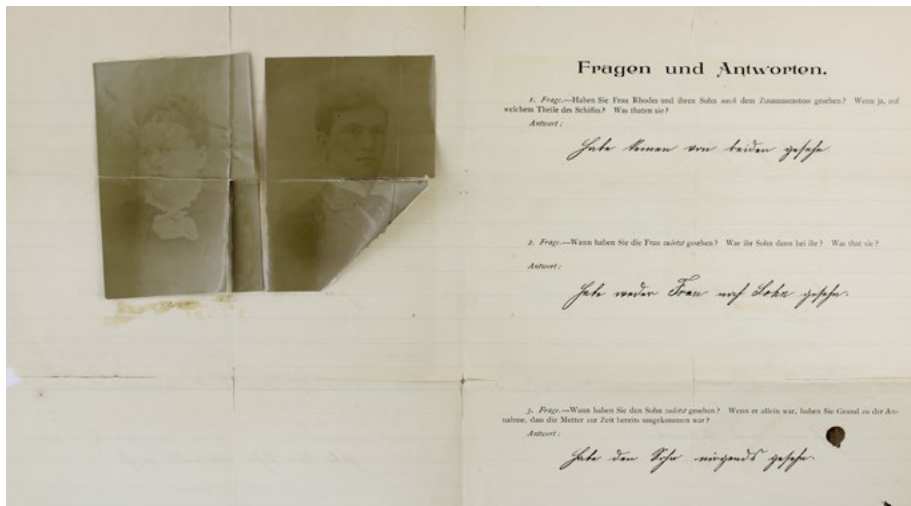 Fragen und Antworten.
1. Frage.—Haben Sie Frau Rhodes und ihren Sohn nach dem Zusammenstoss gesehen? Wenn ja, auf
welchem Theile des Schiffes? Was thaten sie?
Antwort:
Habe keinen von beiden gesehn.
2. Frage.—Wann haben Sie die Frau zuletzt gesehen? War ihr Sohn dann bei ihr? Was that sie?
Antwort:
Habe weder Frau noch Sohn gesehn.
3. Frage.—Wann haben Sie den Sohn zuletzt gesehen? Wenn er allein war, haben Sie Grund zu der An-
nahme, dass die Mutter zur Zeit bereits umgekommen war?
Antwort:
Habe den Sohn nirgends gesehn.